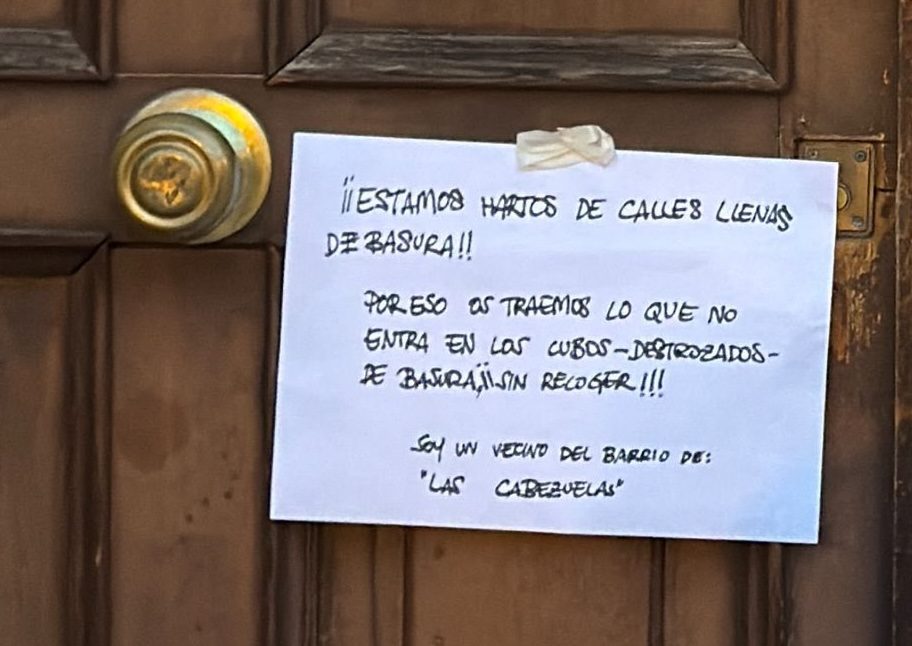 ¡¡ESTAMOS HARTOS DE CALLES LLENAS
DE BASURA!!
POR ESO OS TRAEMOS LO QUE NO
ENTRA EN LOS CUBOS-DESTROZADOS-
DE BASURA,¡¡¡SIN RECOGER!!!
SOY UN VECINO DEL BARRIO DE:
"LAS CABEZUELAS"